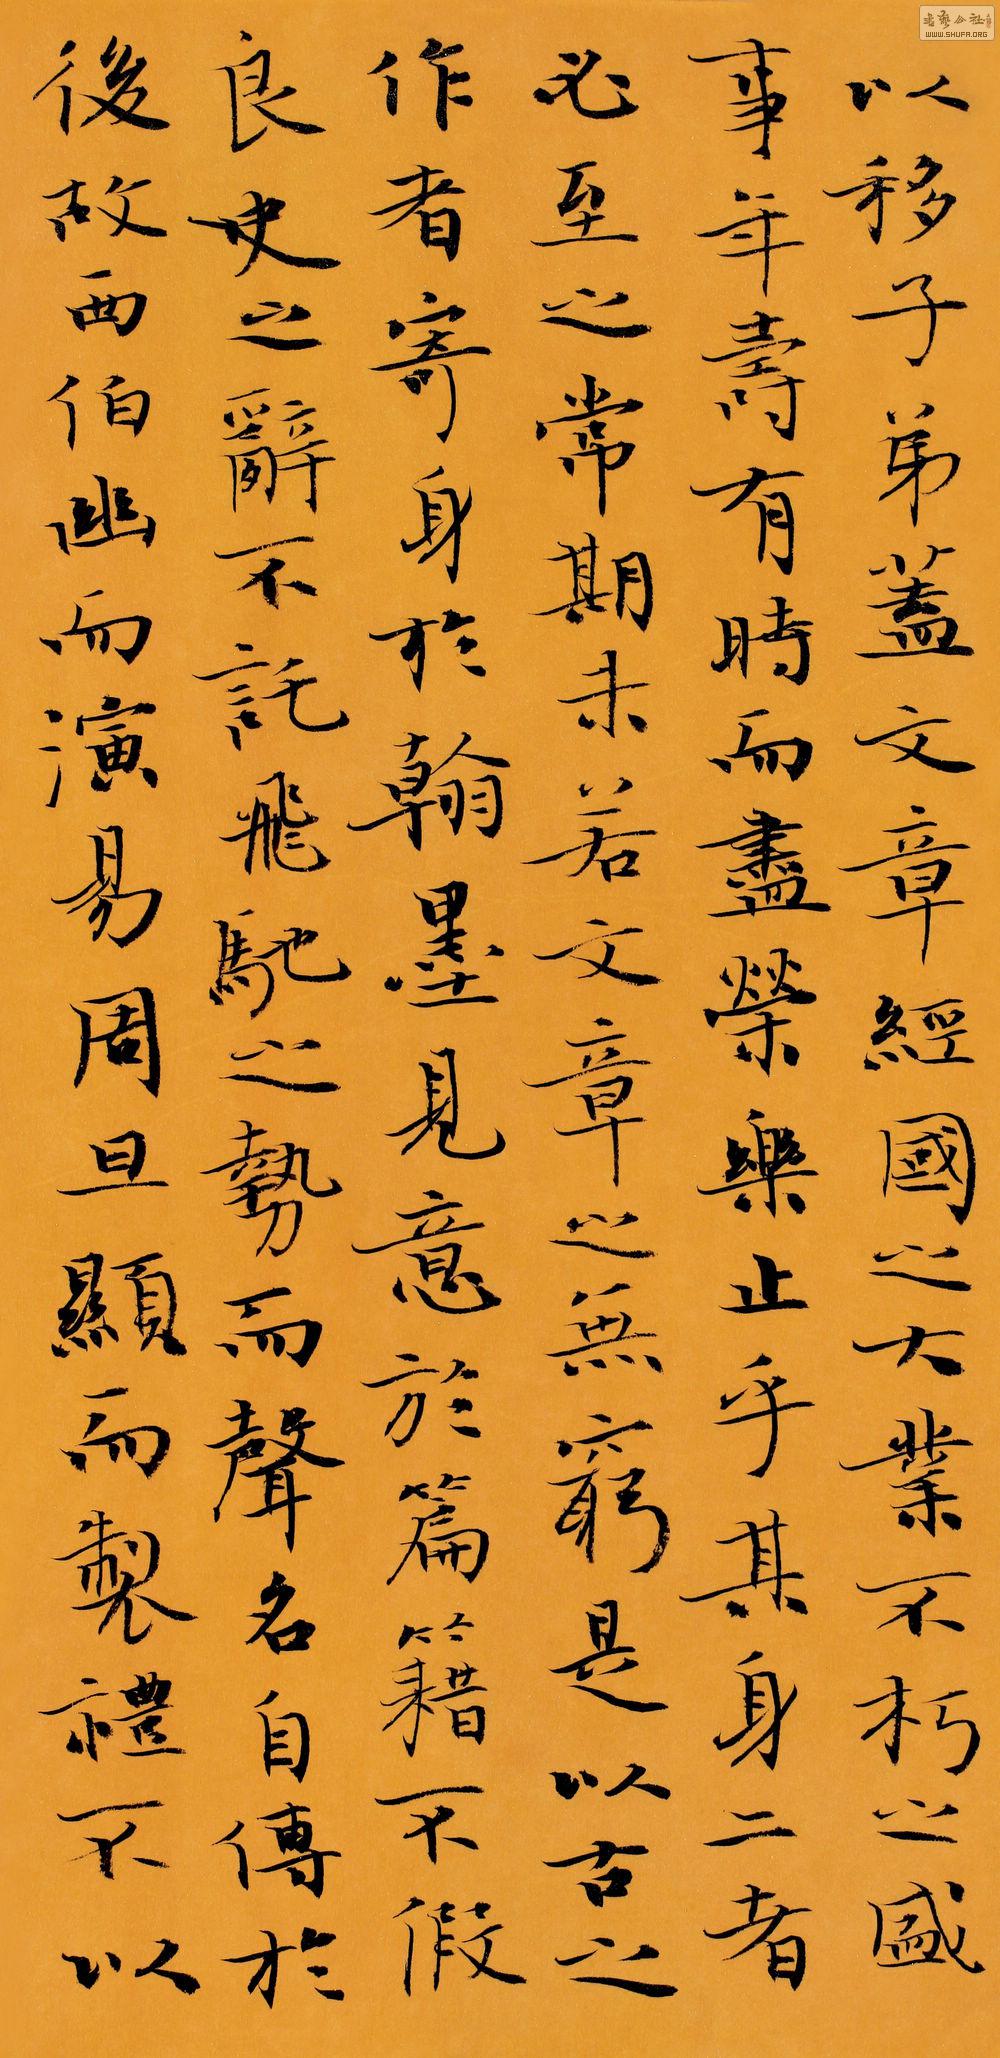 以移子弟蓋文章經國之大業不朽之盛
事年壽有時而盡榮樂止乎其身二者
必至之常期未若文章之無窮是以古之
作者寄身於翰墨見意於篇籍不假
良史之辭不託飛馳之勢而聲名自傳於
後故西伯幽而演易周旦顯而製禮不以
WWW.SHUFA.ORG